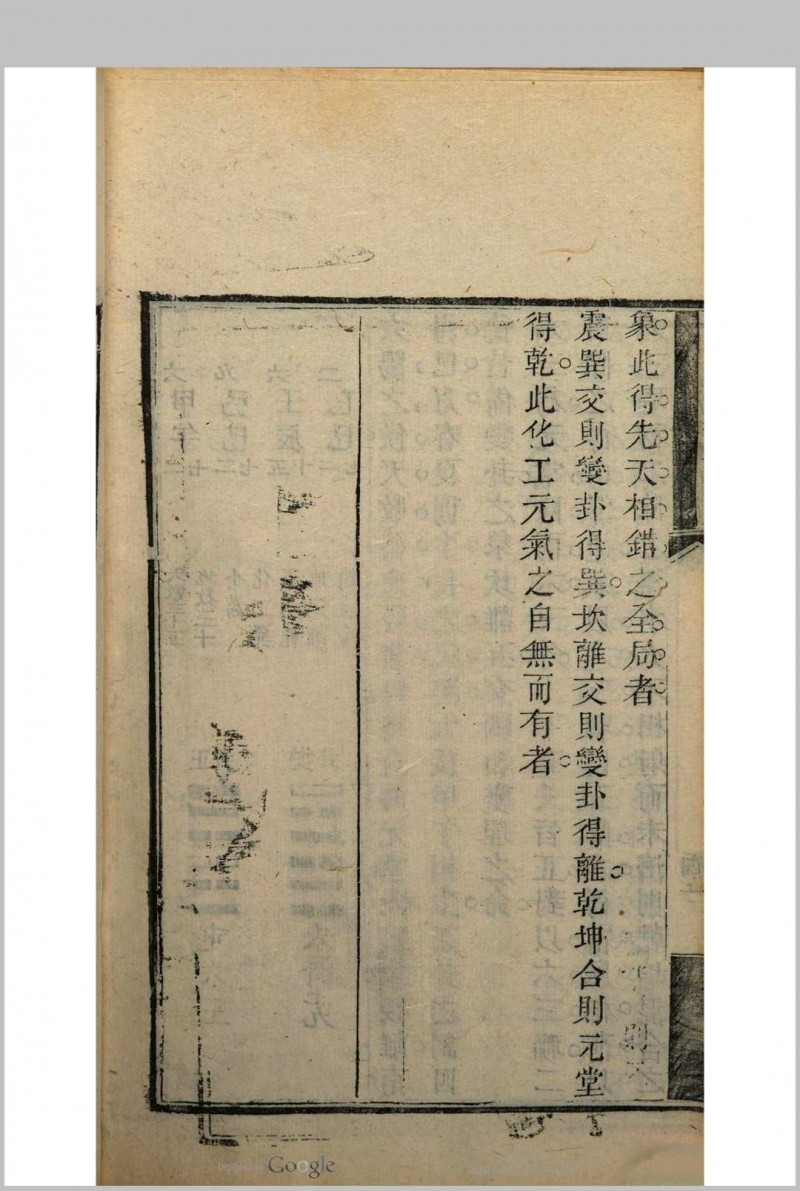 象此得先天相錯之全局者
震巽交則變卦得巽坎離交則變卦得離乾坤合則元堂
得乾此化工元氣之自無而有者
Digitized by Google